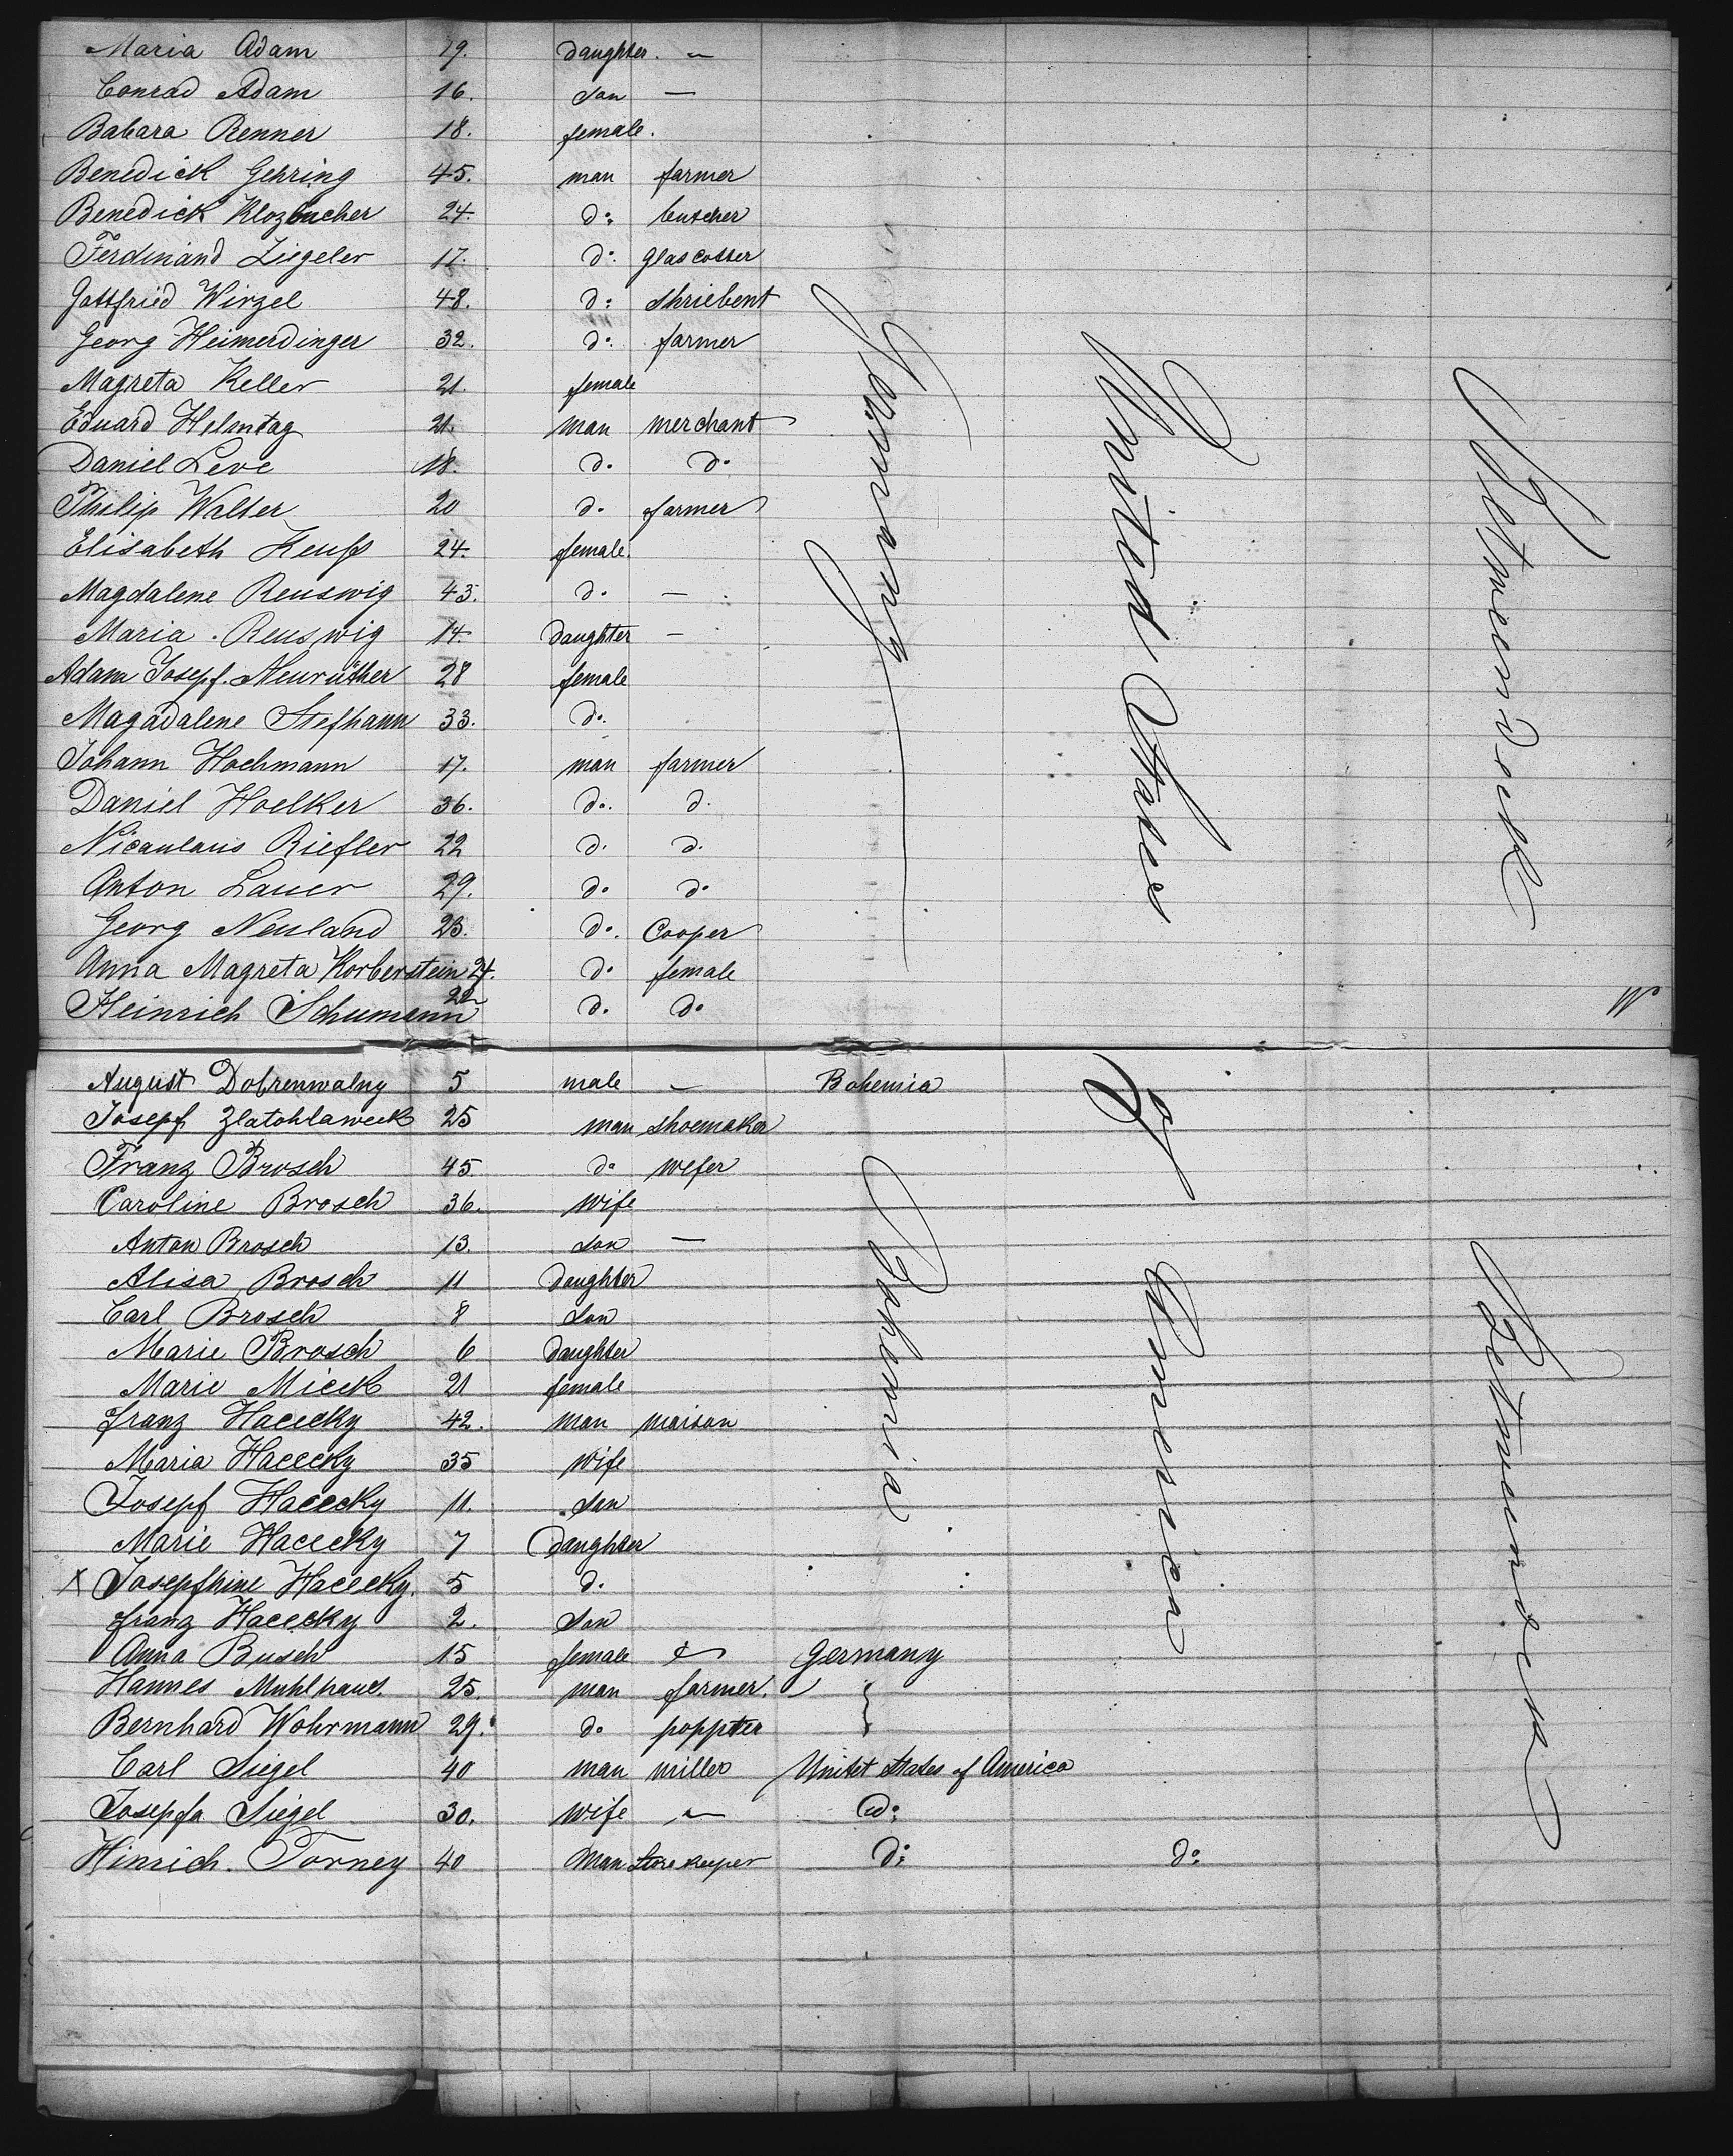 Maria Adam 19. daughter. —
Conrad Adam 16. son —
Babara Renner 18. female.
Benedick Gehring 45. man farmer
Benedick Klozbucher 24. do: butcher
Ferdinand Ziegeler 17. do: Glascotter
Gottfried Wirzel 48. do: shriebent
Georg Heimerdinger 32. do. farmer
Magreta Keller 21. female
Eduard Helmtag 21. man merchant
Daniel Leve 18. do. do.
Philip Walter 20 do. farmer
Elisabeth 24. female.
Magdalene Reuswig 43. do. —
Maria Reuswig 14. Daughter —
Adam Josepf. Neurüther 28 female
Magadalene Stefhann 33. do.
Johann Hochmann 17. man farmer
Daniel Hoelker 36. do. d.
Nicaulaus Riefler 22 d. d.
Anton Lauer 29. do. do.
Georg Neuland 23. do. Cooper
Anna Magreta Korberstein 24. do. female
Heinrich Schumann 22 do. do.
Germany
United States
Betweendeck
August Dobrenwalny 5 male — Bohemia
Josepf Zlatohlaweck 25 man shoemaker
Franz Brosch 45. do wefer
Caroline Brosch 36. wife
Anton Brosch 13. son —
Alisa Brosch 11 Daughter
Carl Brosch 8 son
Marie Brosch 6 Daughter
Marie Micek 21 female
franz Hacecky 42. man maison
Maria Hacecky 35 wife
Josepf Hacecky 11. son
Marie Hacecky 7 Daughter
X Josepfhine Hacecky. 5 d.
franz Hacecky 2. son
Anna Busch 15 female Germany
Hannes Muhlhaus. 25. man farmer.
Bernhard Wohrmann 29. do poppter
Carl Siegel 40 man miller Unitet States of America
Josepfa Siegel 30. wife — do:
Hinrich. Torney 40 Man Storekeeper do: do:
Bohemia
of
America
Betweendeck